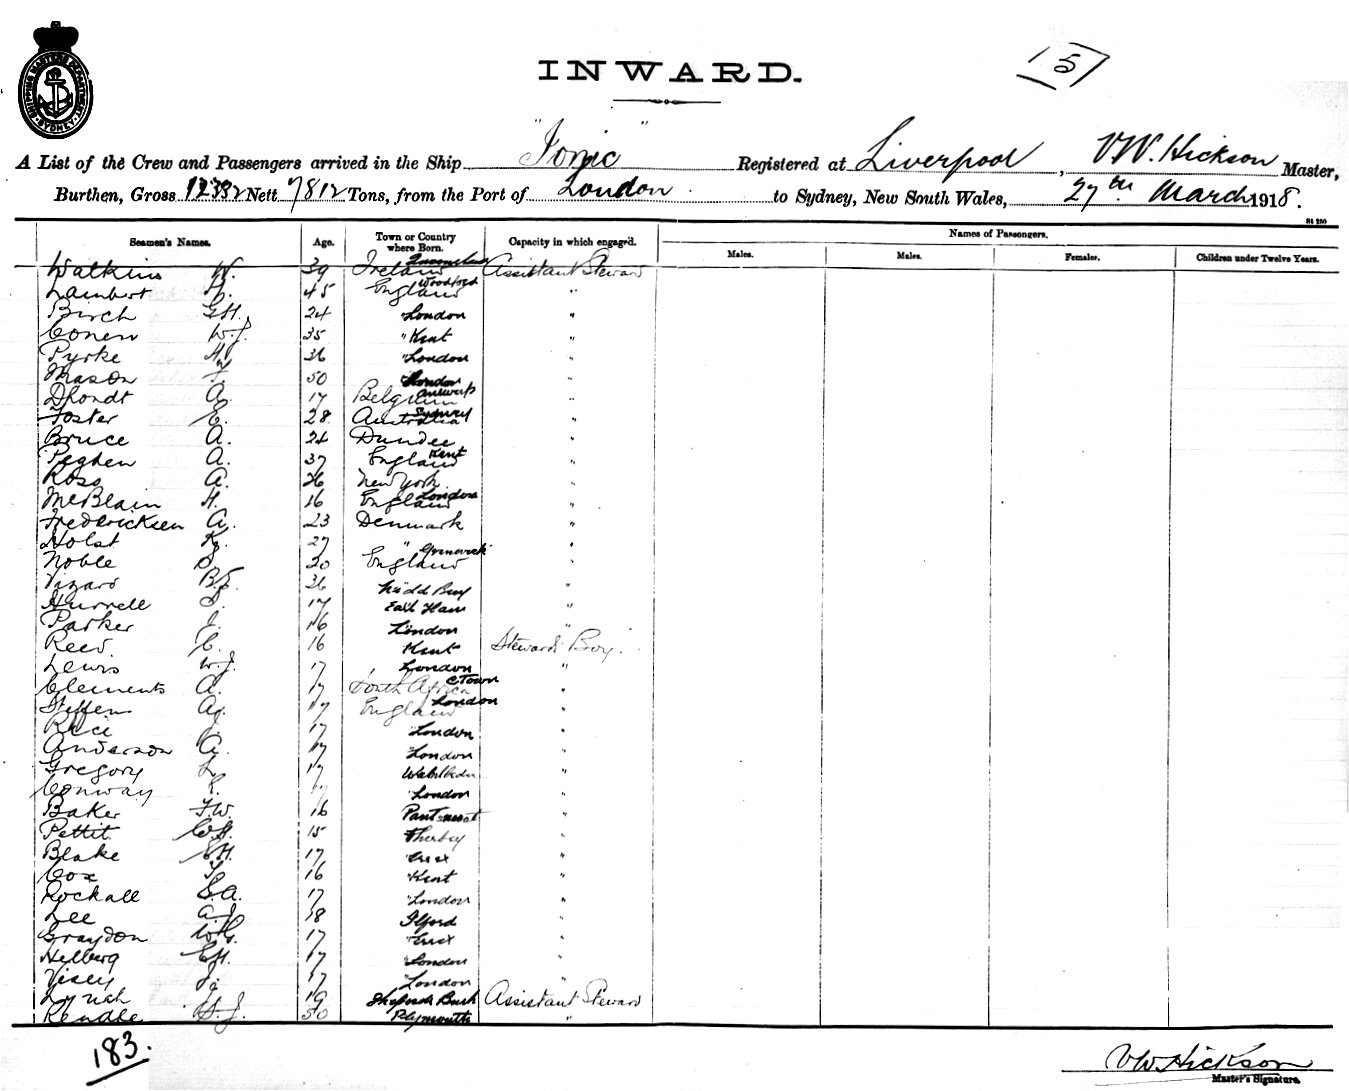 SHIPPING MASTERS DEPARTMENT
SYDNEY
INWARD.
15
A List of the Crew and Passengers arrived in the Ship "Ionic" Registered at Liverpool, VW. Hickson Master,
Burthen, Gross 12332 Nett 7812 Tons, from the Port of London to Sydney, New South Wales, 27th March 1918.
St 250
Seamen's Names. Age. Town or Country where Born. Capacity in which engaged. Names of Passengers.
Males. Males. Females. Children under Twelve Years.
Watkins W. 39 Ireland Assistant Steward
Lambert 45 England Woodford "
Birch G.H. 24 London "
Conen W.J. 35 " Kent "
Pyrke 36 " London "
Mason 50 London "
Dhondt A. 17 Belgium Antwerp "
Foster E. 28 Australia Sydney "
Bruce A. 24 Dundee "
Peghen A. 37 England Kent "
Ross A. 26 New York "
McBlain H. 16 England London "
Fredericksen A. 23 Denmark "
Holst 27 " "
Noble 20 England "
Vizard 36 "
Hurrell 17 East Ham "
Parker J. 16 London "
Reed C. 16 Kent Stewards Boy.
Lewis W.J. 17 London "
Clements A. 17 South Africa C Town "
Steffens 17 England London "
Rice 17 London "
Anderson A. 17 London "
Gregory L. 17 "
Conway 17 London "
Baker F.W. 16 "
Pettit 15 "
Blake 17 "
Cox 16 Kent "
Rockall S.A. 17 London "
Lee 18 Ilford "
Graydon 17 "
Helberg 17 London "
Visey 17 London "
Lynch 19 Shepherds Bush Assistant Steward
Rendle 50 Plymouth "
183.
VW Hickson
Master's Signature.